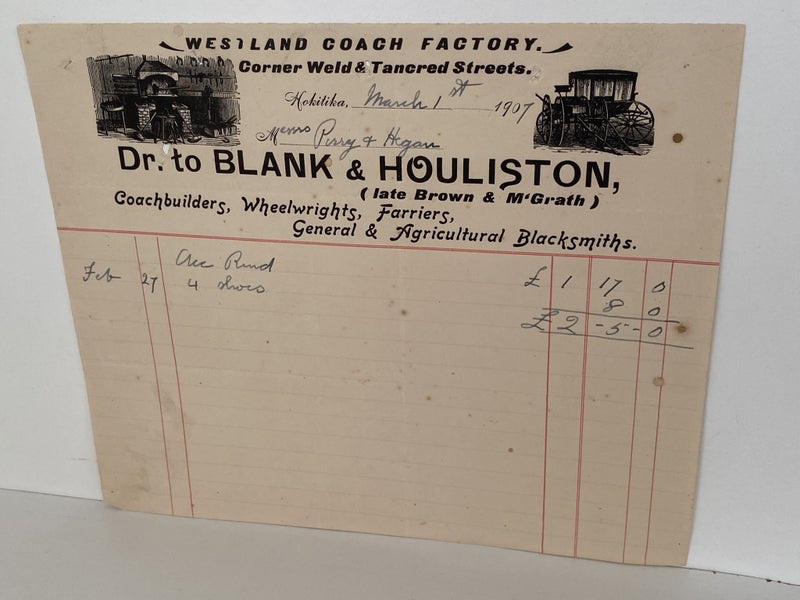 WESTLAND COACH FACTORY.
Corner Weld & Tancred Streets.
Hokitika, March 1st 1907
Messrs Perry & Hegan
Dr. to BLANK & HOULISTON,
(late Brown & M'Grath)
Coachbuilders, Wheelwrights, Farriers,
General & Agricultural Blacksmiths.
Acc Rend £ 1 17 0
Feb 27 4 shoes 8 0
£ 2 - 5 - 0